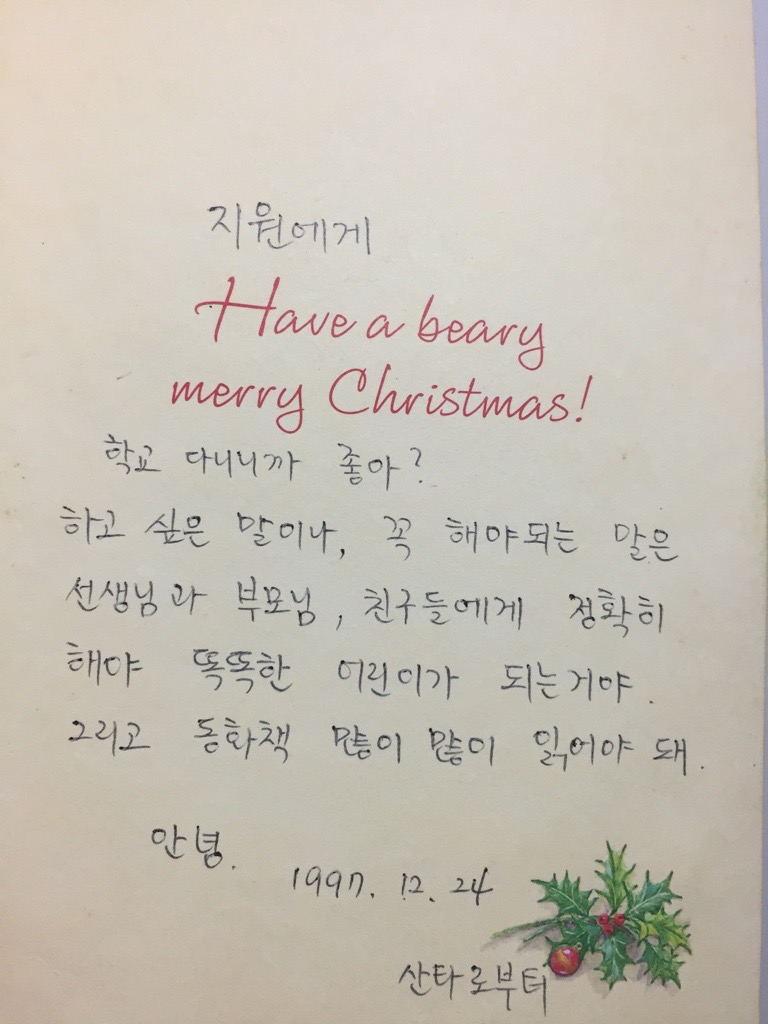 지원에게
Have a beary
merry Christmas!
학교 다니니까 좋아?
하고 싶은 말이나, 꼭 해야되는 말은
선생님과 부모님, 친구들에게 정확히
해야 똑똑한 어린이가 되는거야.
그리고 동화책 많이 많이 읽어야 돼.
안녕.
1997. 12. 24
산타로부터